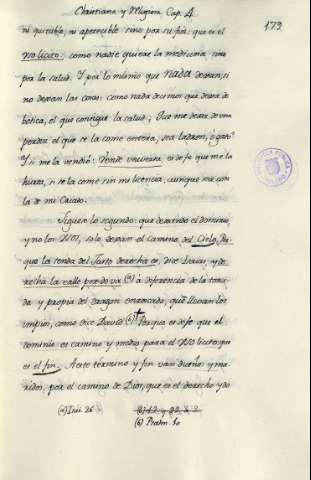 Christiana y Religiosa Cap. 4
173
ni querible, ni apetecible sino por su fin: que es el
No licito: como nadie quiere la medicina, sino
por la salud. Y por lo mismo que nada dexan, si
no dexan las cosas: como nada decimos que dexa de
botica, el que consigue la salud; Una me dexa de una
perdiz el que se la come entera, sea ladron, o gato?
Y si me la vendió: Donde
hurta, si se la come sin mi licencia; aunque sea con
la de mi Criado.
Siguese lo segundo: que dexando el dominio,
y no los Usos, solo dexan el camino del Cielo, Por
que la senda del Justo derecha es, dice Isaias, y de
recha la calle por do va (a) à diferencia de la
da y propia del dragon enroscado, que llevan los
impios, como dice David (b) Porque es dejo que el
dominio es camino y medio para el No licito que
es el fin. A este termino y fin van dueños y ma
ridos, por el camino de Dios, que es el derecho y do
(a) Isai. 26
(b) 12 y 22. à 2
(b) Psalm. 10